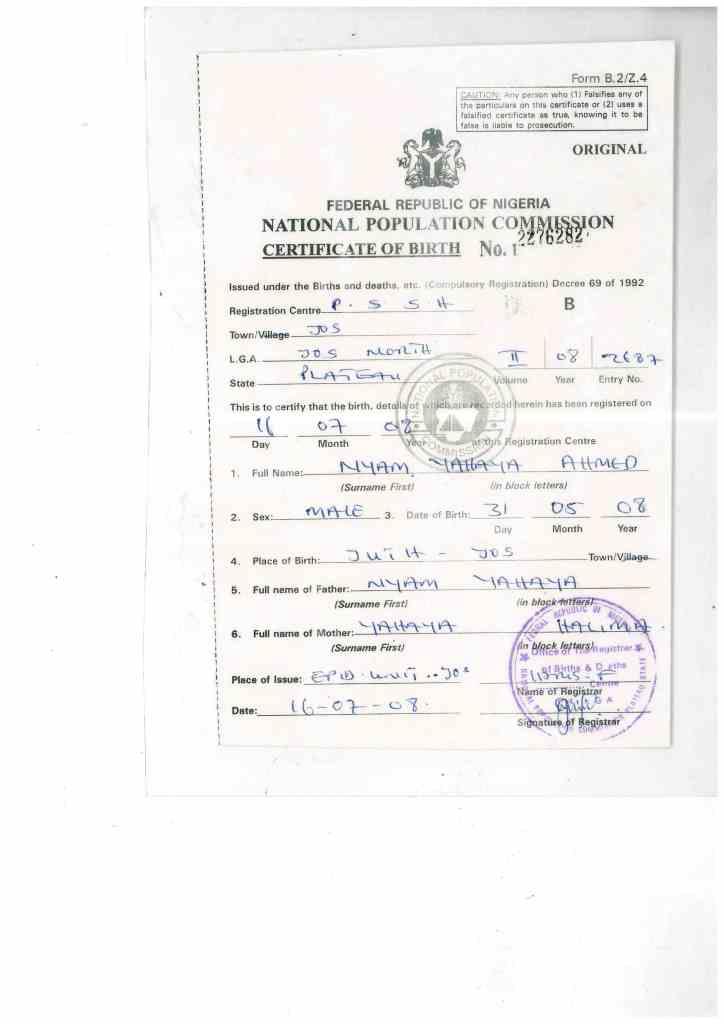 Form B.2/Z.4
CAUTION: Any person who (1) Falsifies any of
the particulars on this certificate or (2) uses a
falsified certificate as true, knowing it to be
false is liable to prosecution.
ORIGINAL
FEDERAL REPUBLIC OF NIGERIA
NATIONAL POPULATION COMMISSION
CERTIFICATE OF BIRTH No. 1 2276282
Issued under the Births and deaths, etc. (Compulsory Registration) Decree 69 of 1992
Registration Centre P. S S H B
Town/Village JOS
L.G.A JOS NORTH II 08 2687
State PLATEAU Volume Year Entry No.
This is to certify that the birth, details of which are recorded herein has been registered on
16 07 08
Day Month Year at this Registration Centre
1. Full Name: NYAM YAHAYA AHMED
(Surname First) (in block letters)
2. Sex: MALE 3. Date of Birth: 31 05 08
Day Month Year
4. Place of Birth: JUTH - JOS Town/Village
5. Full name of Father: NYAM YAHAYA
(Surname First) (in block letters)
6. Full name of Mother: YAHAYA HALIMA
(Surname First) (in block letters)
Office of The Registrar
of Births & Deaths
Place of Issue: UNIT JOS
Name of Registrar
Date: 16-07-08.
Signature of Registrar